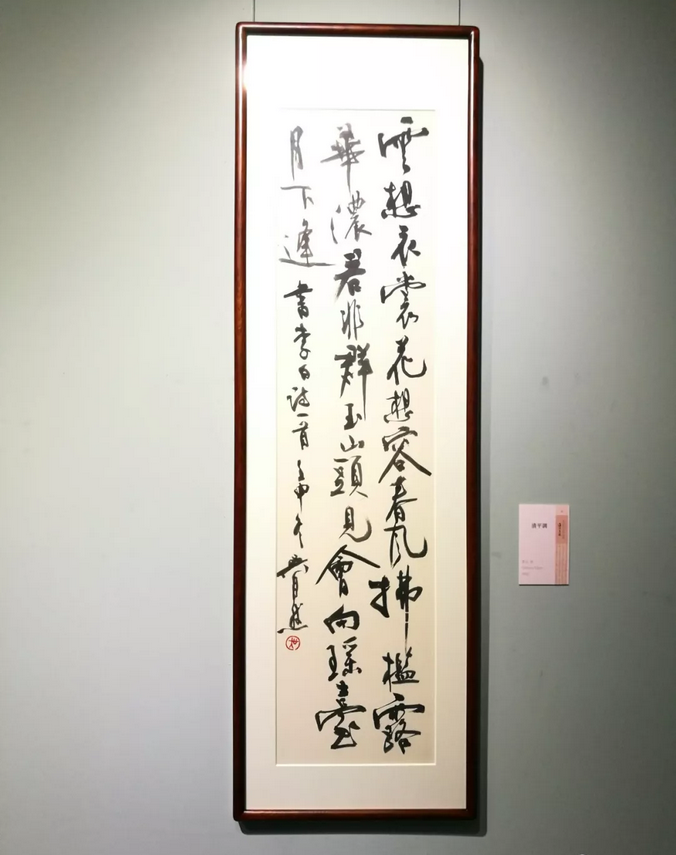 雲想衣裳花想容春風拂檻露
華濃若非群玉山頭見會向瑤臺
月下逢 書李白詩一首 壬申冬
清平調